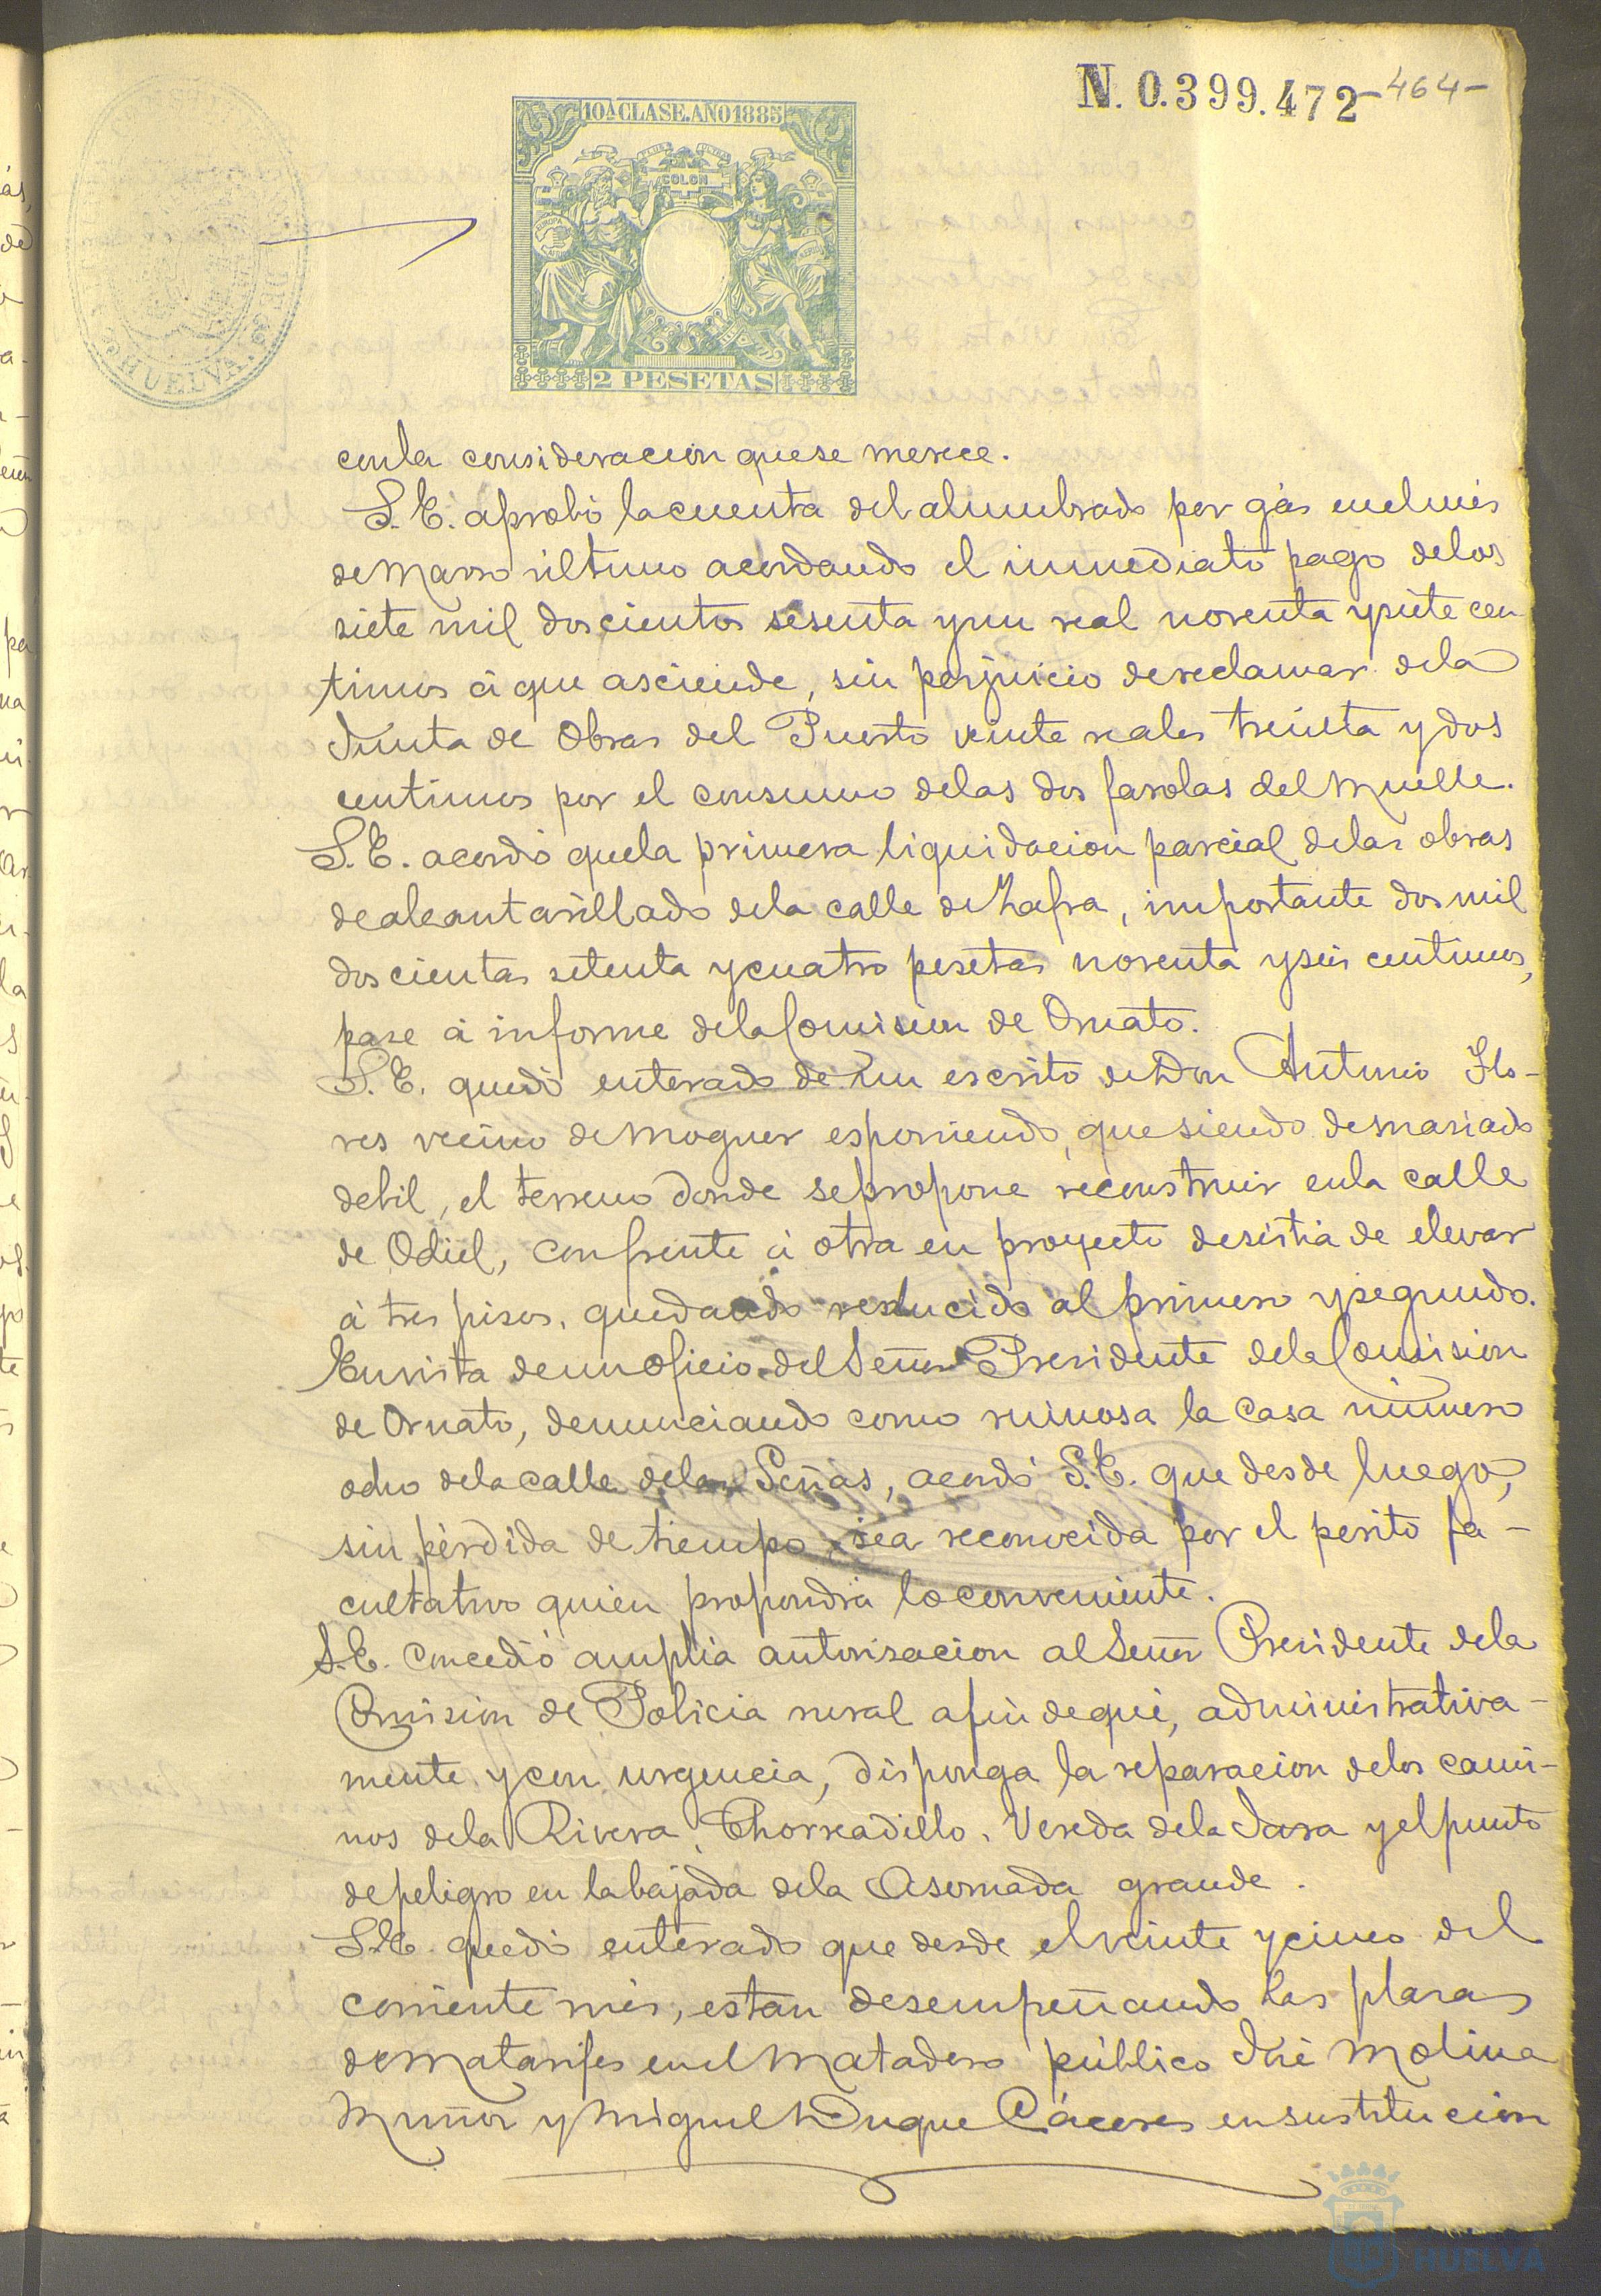 N. 0.399.472 -464-
10ª CLASE. AÑO 1885
PLUS ULTRA
COLON
EUROPA
2 PESETAS
HUELVA
con la consideracion que se merece.
S. E. aprobó la cuenta del alumbrado por gás en el més
de Marzo último acordando el inmediato pago de los
siete mil doscientos sesenta y un real noventa y siete cen
timos á que asciende, sin perjuicio de reclamar de la
Junta de Obras del Puerto veinte reales treinta y dos
centimos por el consumo de las dos farolas del Muelle.
S. E. acordó que la primera liquidacion parcial de las obras
de alcantarillado de la calle de Zafra, importante dos mil
doscientas setenta y cuatro pesetas noventa y seis centimos,
pase á informe de la Comision de Ornato.
S. E. quedó enterado de un escrito de Don Antonio Flo-
res vecino de Moguer esponiendo, que siendo demasiado
debil, el terreno donde se propone reconstruir en la calle
de Odiel, con frente á otra en proyecto desistia de elevar
á tres pisos, quedando reducido al primero y segundo.
En vista de un oficio del Señor Presidente de la Comision
de Ornato, denunciando como ruinosa la casa número
ocho de la calle de las Peñas, acordó S. E. que desde luego,
sin pérdida de tiempo, sea reconocida por el perito fa-
cultativo quien propondrá lo conveniente.
S. E. concedió amplia autorisacion al Señor Presidente de la
Comision de Policia rural a fin de que, administrativa-
mente y con urgencia, disponga la reparacion de los cami-
nos de la Rivera, Chorreadillo, Vereda de la Jara y el punto
de peligro en la bajada de la Asomada grande.
S. E. quedó enterado que desde el veinte y cinco del
corriente més, estan desempeñando las plazas
de Matarifes en el Matadero público José Molina
Muñoz y Miguel Duque Cáceres en sustitucion
HUELVA